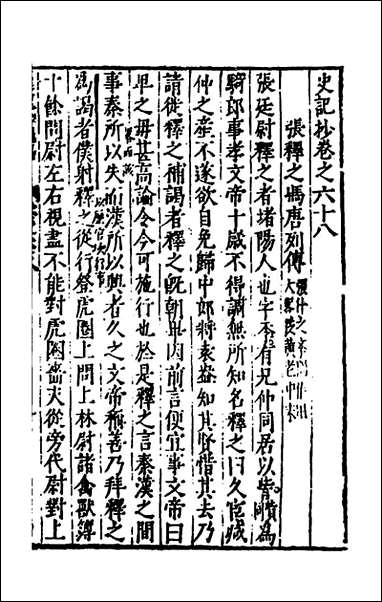 史記抄卷之六十八
張釋之馮唐列傳
張廷尉釋之者堵陽人也字季有兄仲同居以貲爲
騎郎事孝文帝十歲不得調無所知名釋之曰久宦減
仲之產不遂欲自免歸中郎將袁盎知其賢惜其去乃
請徙釋之補謁者釋之既朝畢因前言便宜事文帝曰
卑之毋甚高論令今可施行也於是釋之言秦漢之間
事秦所以失而漢所以興者久之文帝稱善乃拜釋之
爲謁者僕射釋之從行登虎圈上問上林尉諸禽獸簿
十餘問尉左右視盡不能對虎圈嗇夫從旁代尉對上